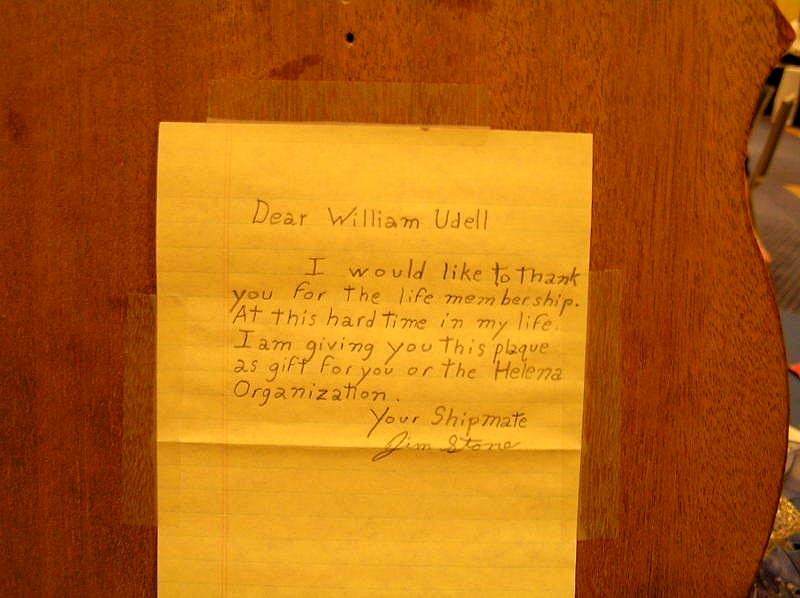 Dear William Udell
I would like to thank
you for the life membership.
At this hard time in my life.
I am giving you this plaque
as gift for you or the Helena
Organization.
Your Shipmate
Jim Stone